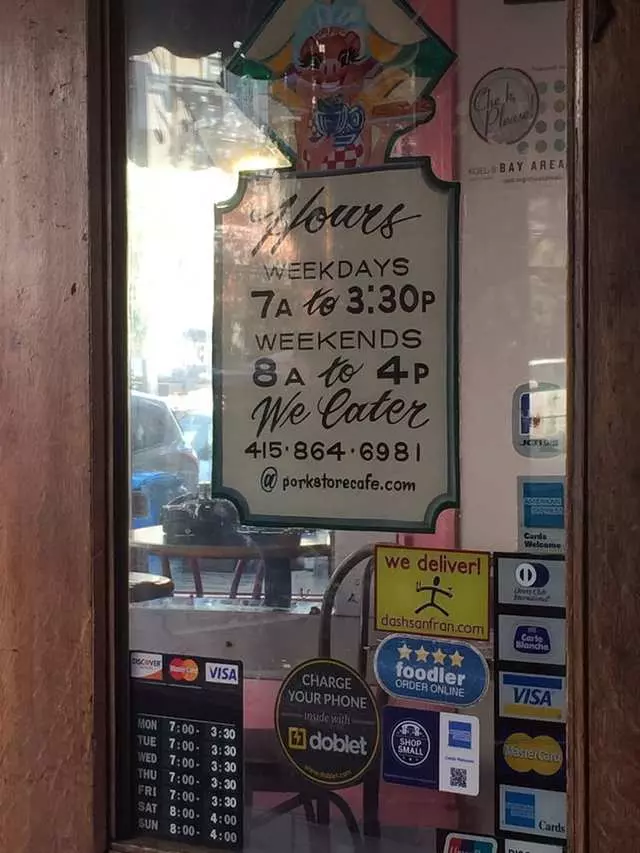 Check,
Please!
KQED's BAY AREA
Hours
WEEKDAYS
7A to 3:30P
WEEKENDS
8A to 4P
We Cater
415·864·6981
@ porkstorecafe.com
JCB
AMERICAN
EXPRESS
Cards
Welcome
we deliver!
dashsanfran.com
Diners Club
International
foodler
ORDER ONLINE
Carte
Blanche
VISA
MasterCard
Cards
DISCOVER MasterCard VISA
MON 7:00- 3:30
TUE 7:00- 3:30
WED 7:00- 3:30
THU 7:00- 3:30
FRI 7:00- 3:30
SAT 8:00- 4:00
SUN 8:00- 4:00
CHARGE
YOUR PHONE
inside with
doblet
www.doblet.com
SHOP
SMALL